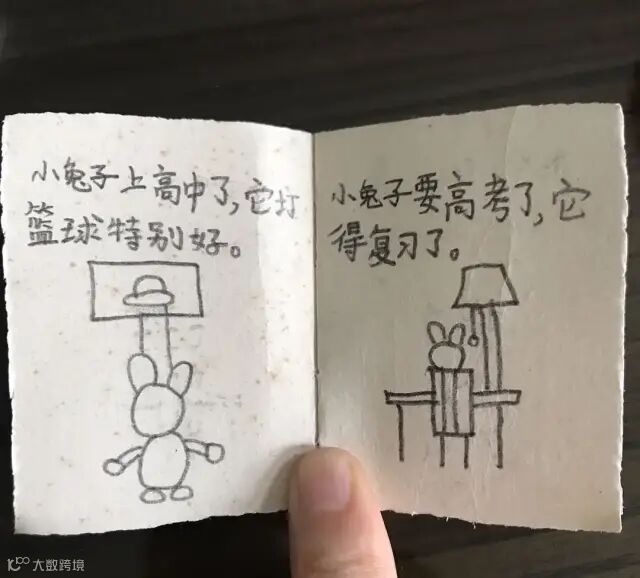 小兔子上高中了,它打
篮球特别好。
小兔子要高考了,它
得复习了。
大数跨境